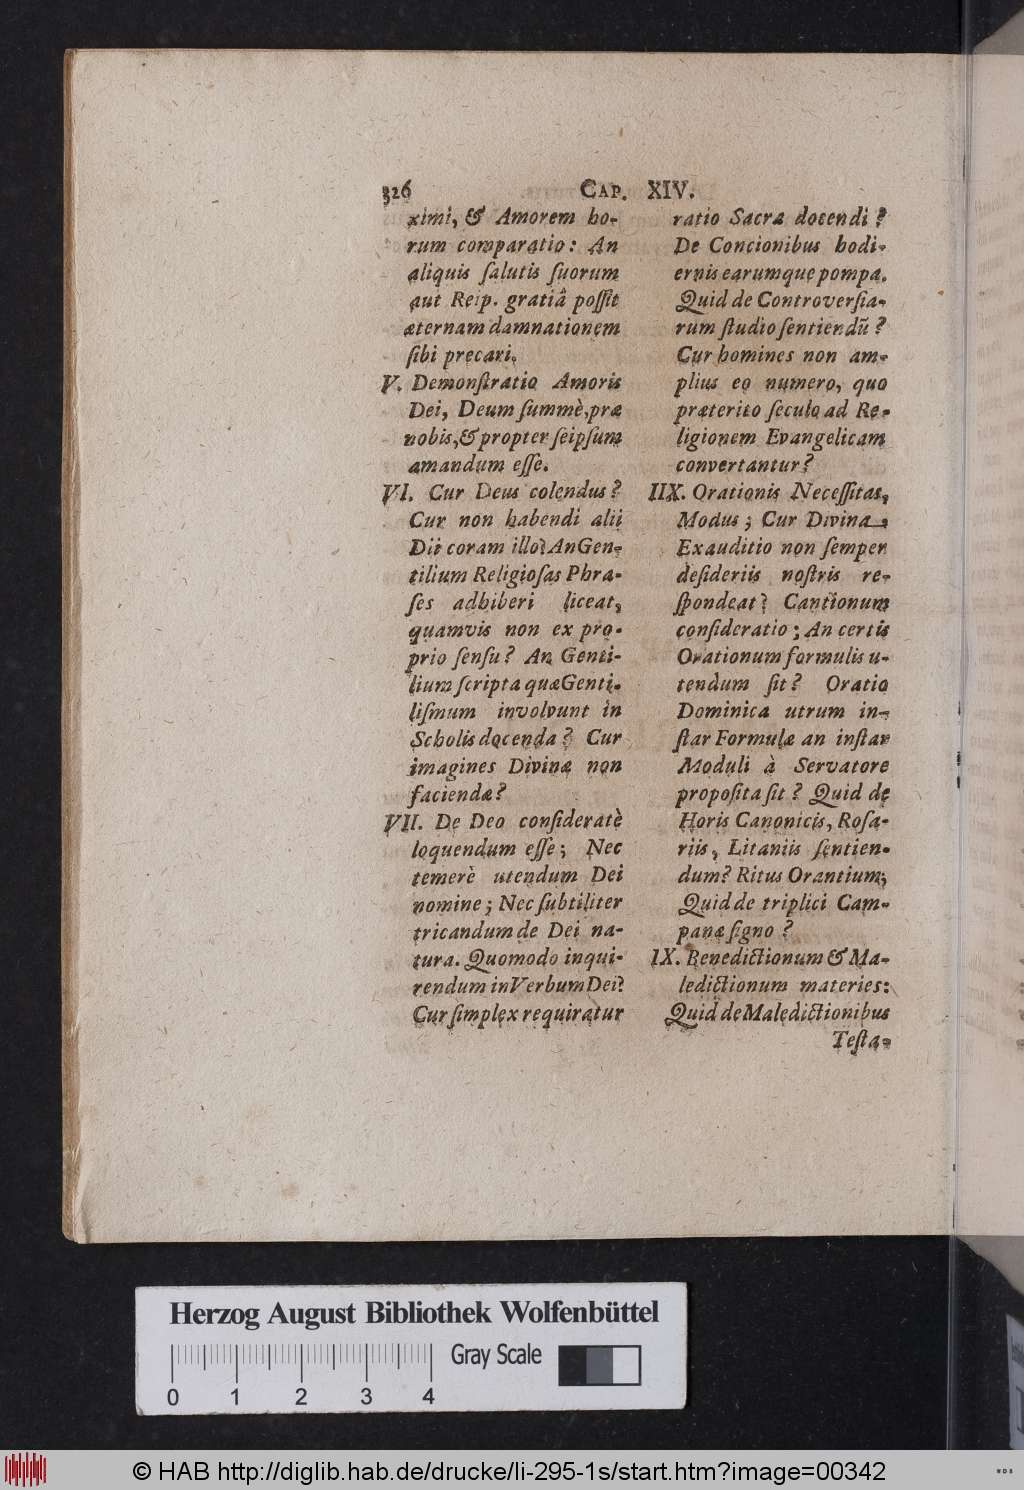 326 CAP. XIV.
ximi, & Amorem ho-
rum comparatio: An
aliquis ſalutis ſuorum
aut Reip. gratiâ poſſit
æternam damnationem
ſibi precari.
V. Demonſtratio Amoris
Dei, Deum ſummè, præ
nobis, & propter ſeipſum
amandum eſſe.
VI. Cur Deus colendus?
Cur non habendi alii
Dii coram illo? An Gen-
tilium Religioſas Phra-
ſes adhiberi liceat,
quamvis non ex pro-
prio ſenſu? An Genti-
lium ſcripta quæ Genti-
liſmum involvunt in
Scholis docenda? Cur
imagines Divinæ non
faciendæ?
VII. De Deo conſideratè
loquendum eſſe; Nec
temerè utendum Dei
nomine; Nec ſubtiliter
tricandum de Dei na-
tura. Quomodo inqui-
rendum in Verbum Dei?
Cur ſimplex requiratur
ratio Sacra docendi?
De Concionibus hodi-
ernis earumque pompa.
Quid de Controverſia-
rum ſtudio ſentiendū?
Cur homines non am-
plius eo numero, quo
præterito ſeculo ad Re-
ligionem Evangelicam
convertantur?
IIX. Orationis Neceſſitas,
Modus; Cur Divina
Exauditio non ſemper
deſideriis noſtris re-
ſpondeat? Cantionum
conſideratio; An certis
Orationum formulis u-
tendum ſit? Oratio
Dominica utrum in-
ſtar Formulæ an inſtar
Moduli à Servatore
propoſita ſit? Quid de
Horis Canonicis, Roſa-
riis, Litaniis ſentien-
dum? Ritus Orantium;
Quid de triplici Cam-
panæ ſigno?
IX. Benedictionum & Ma-
ledictionum materies:
Quid de Maledictionibus
Teſta-
Herzog August Bibliothek Wolfenbüttel
Gray Scale
0 1 2 3 4
© HAB http://diglib.hab.de/drucke/li-295-1s/start.htm?image=00342